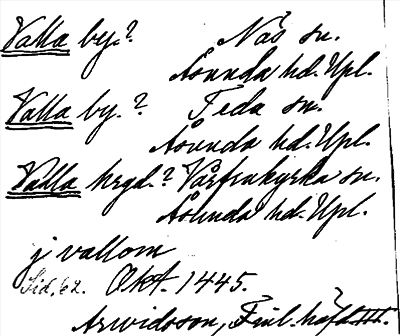 Valla by.? Näs sn.
Åsunda hd. Upl.
Valla by.? Teda sn.
Åsunda hd. Upl.
Valla hrgd.? Vårfrukyrka sn.
Åsunda hd. Upl.
j vallom
Sid. 62. Okt. 1445.
Arwidsson, Finl. häfd III.